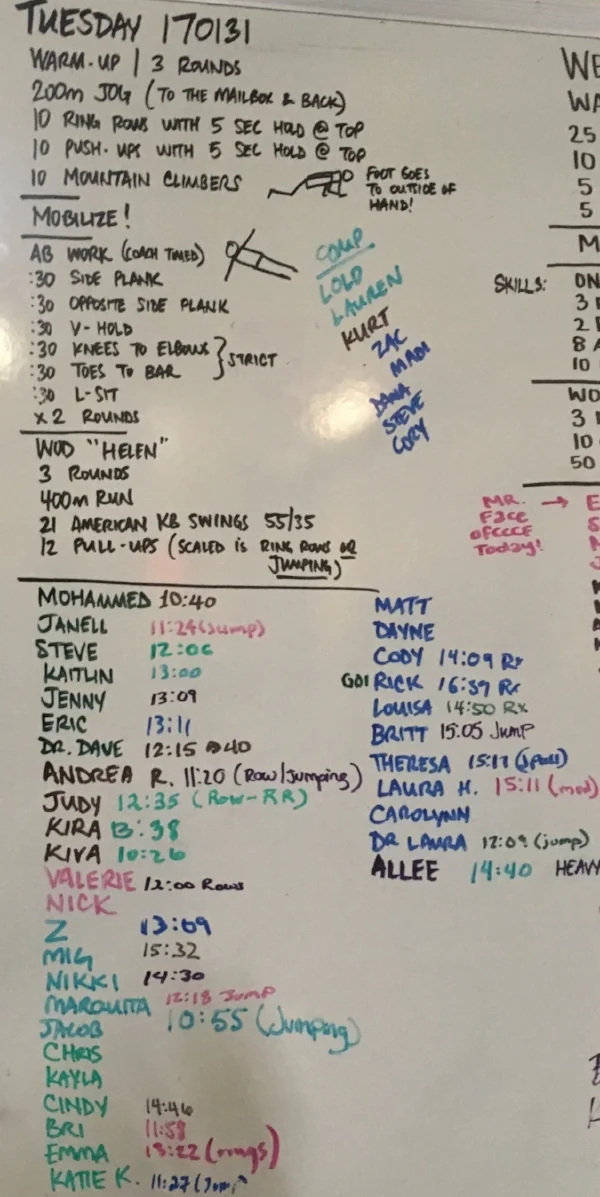 TUESDAY 170131
WARM-UP | 3 ROUNDS
200m JOG (TO THE MAILBOX & BACK)
10 RING ROWS WITH 5 SEC HOLD @ TOP
10 PUSH-UPS WITH 5 SEC HOLD @ TOP
10 MOUNTAIN CLIMBERS
FOOT GOES
TO OUTSIDE OF
HAND!
MOBILIZE!
AB WORK (COACH TIMED)
:30 SIDE PLANK
:30 OPPOSITE SIDE PLANK
:30 V-HOLD
:30 KNEES TO ELBOWS } STRICT
:30 TOES TO BAR
:30 L-SIT
x 2 ROUNDS
COMP
LOLO
LAUREN
KURT
ZAC
MADI
DANA
STEVE
CORY
WOD "HELEN"
3 ROUNDS
400m RUN
21 AMERICAN KB SWINGS 55/35
12 PULL-UPS (SCALED is RING ROWS OR
JUMPING)
MOHAMMED 10:40
JANELL 11:29(Jump)
STEVE 12:06
KAITLIN 13:00
JENNY 13:09
ERIC 13:11
DR. DAVE 12:15 @40
ANDREA R. 11:20 (Row/Jumping)
JUDY 12:35 (Row-RR)
KIRA 13:38
KIVA 10:26
VALERIE 12:00 Rows
NICK
Z 13:09
MIG 15:32
NIKKI 14:30
MARQUITA 12:18 Jump
JACOB 10:55 (Jumping)
CHRIS
KAYLA
CINDY 14:46
BRI 11:58
EMMA 13:22 (rings)
KATIE K. 11:27
MATT
DAYNE
CODY 14:09 Rx
RICK 16:39 Rx
LOUISA 14:50 Rx
BRITT 15:05 Jump
THERESA 15:17
LAURA H. 15:11 (mod)
CAROLYNN
DR LAURA 12:09 (jump)
ALLEE 14:40 HEAVY
WE
WA
25
10
5
5
M
SKILLS: ON
3
2
8
10
WO
3
10
50
MR. →
Face
OFCCCF
Today!